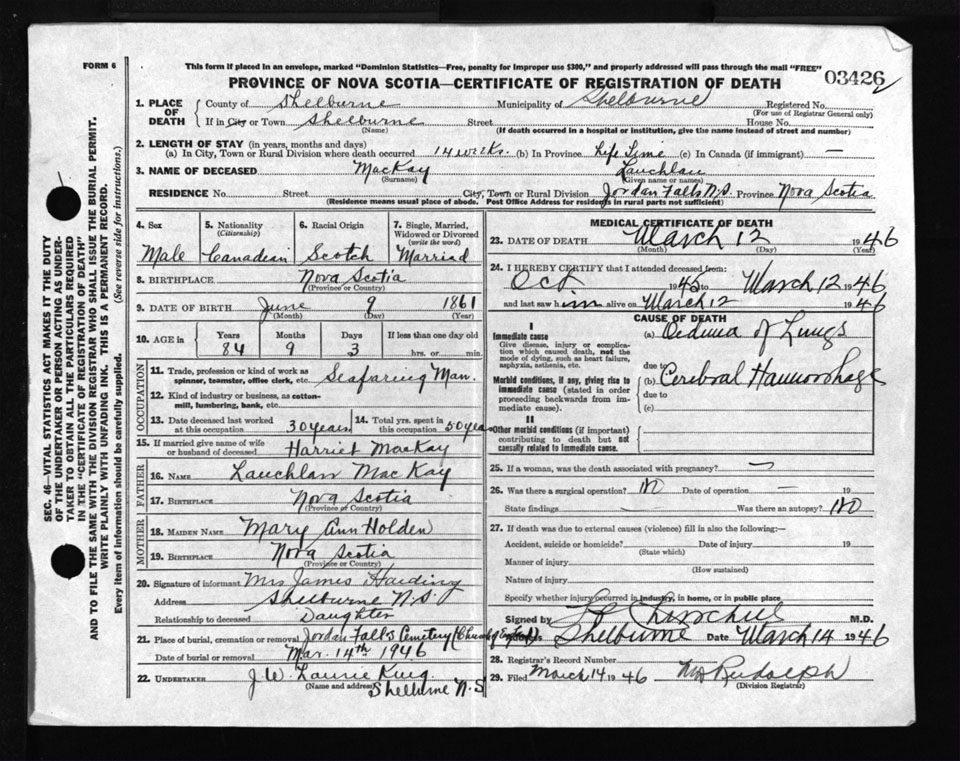 FORM 6
This form if placed in an envelope, marked "Dominion Statistics—Free, penalty for improper use $300," and properly addressed will pass through the mail "FREE"
PROVINCE OF NOVA SCOTIA—CERTIFICATE OF REGISTRATION OF DEATH
03426
SEC. 46—VITAL STATISTICS ACT MAKES IT THE DUTY
OF THE UNDERTAKER OR PERSON ACTING AS UNDER-
TAKER TO OBTAIN ALL THE PARTICULARS REQUIRED
IN THE "CERTIFICATE OF REGISTRATION OF DEATH"
AND TO FILE THE SAME WITH THE DIVISION REGISTRAR WHO SHALL ISSUE THE BURIAL PERMIT.
WRITE PLAINLY WITH UNFADING INK. THIS IS A PERMANENT RECORD.
Every item of information should be carefully supplied. (See reverse side for instructions.)
1. PLACE OF DEATH
County of Shelburne Municipality of Shelburne Registered No.
(For use of Registrar General only)
If in City or Town Shelburne Street House No.
(Name) (If death occurred in a hospital or institution, give the name instead of street and number)
2. LENGTH OF STAY (in years, months and days)
(a) In City, Town or Rural Division where death occurred 14 weeks. (b) In Province Life Time (c) In Canada (if immigrant) —
3. NAME OF DECEASED MacKay Lauchlan
(Surname) (Given name or names)
RESIDENCE No. Street City, Town or Rural Division Jordan Falls N.S. Province Nova Scotia
(Residence means usual place of abode. Post Office Address for residents in rural parts not sufficient)
4. Sex 5. Nationality 6. Racial Origin 7. Single, Married,
(Citizenship) Widowed or Divorced
(write the word)
Male Canadian Scotch Married
8. BIRTHPLACE Nova Scotia
(Province or Country)
9. DATE OF BIRTH June 9 1861
(Month) (Day) (Year)
10. AGE in Years Months Days If less than one day old
84 9 3 hrs. or min.
OCCUPATION
11. Trade, profession or kind of work as
spinner, teamster, office clerk, etc. Seafaring Man.
12. Kind of industry or business, as cotton-
mill, lumbering, bank, etc.
13. Date deceased last worked 14. Total yrs. spent in
at this occupation 30 years this occupation 50 years
15. If married give name of wife
or husband of deceased Harriet MacKay
FATHER
16. NAME Lauchlan MacKay
17. BIRTHPLACE Nova Scotia
(Province or Country)
MOTHER
18. MAIDEN NAME Mary Ann Holden
19. BIRTHPLACE Nova Scotia
(Province or Country)
20. Signature of informant Mrs James Harding
Address Shelburne N.S.
Relationship to deceased Daughter
21. Place of burial, cremation or removal Jordan Falls Cemetery (Church of Eng
Date of burial or removal Mar. 14th 1946
22. UNDERTAKER J.W. Laurie King
(Name and address) Shelburne N.S
MEDICAL CERTIFICATE OF DEATH
23. DATE OF DEATH March 12 1946
(Month) (Day) (Year)
24. I HEREBY CERTIFY that I attended deceased from:
Oct 1945 to March 12 1946
and last saw him alive on March 12 1946
CAUSE OF DEATH
I
Immediate cause
Give disease, injury or complica-
tion which caused death, not the
mode of dying, such as heart failure,
asphyxia, asthenia, etc.
(a) Oedema of Lungs
due to
Morbid conditions, if any, giving rise to
immediate cause (stated in order
proceeding backwards from im-
mediate cause).
(b) Cerebral Haemorrhage
due to
(c)
II
Other morbid conditions (if important)
contributing to death but not
causally related to immediate cause.
25. If a woman, was the death associated with pregnancy? —
26. Was there a surgical operation? no Date of operation — 19
State findings — Was there an autopsy? no
27. If death was due to external causes (violence) fill in also the following:—
Accident, suicide or homicide? Date of injury 19
(State which)
Manner of injury
(How sustained)
Nature of injury
Specify whether injury occurred in industry, in home, or in public place
Signed by Churchill M.D.
Address Shelburne Date March 14 1946
28. Registrar's Record Number
29. Filed March 14 1946 Rudolph
(Division Registrar)